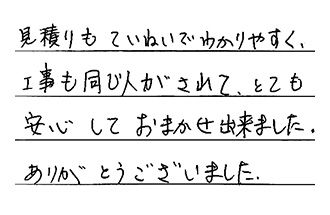 見積りも ていねいでわかりやすく、
工事も同じ人がされて、とても
安心して おまかせ出来ました。
ありがとうございました。